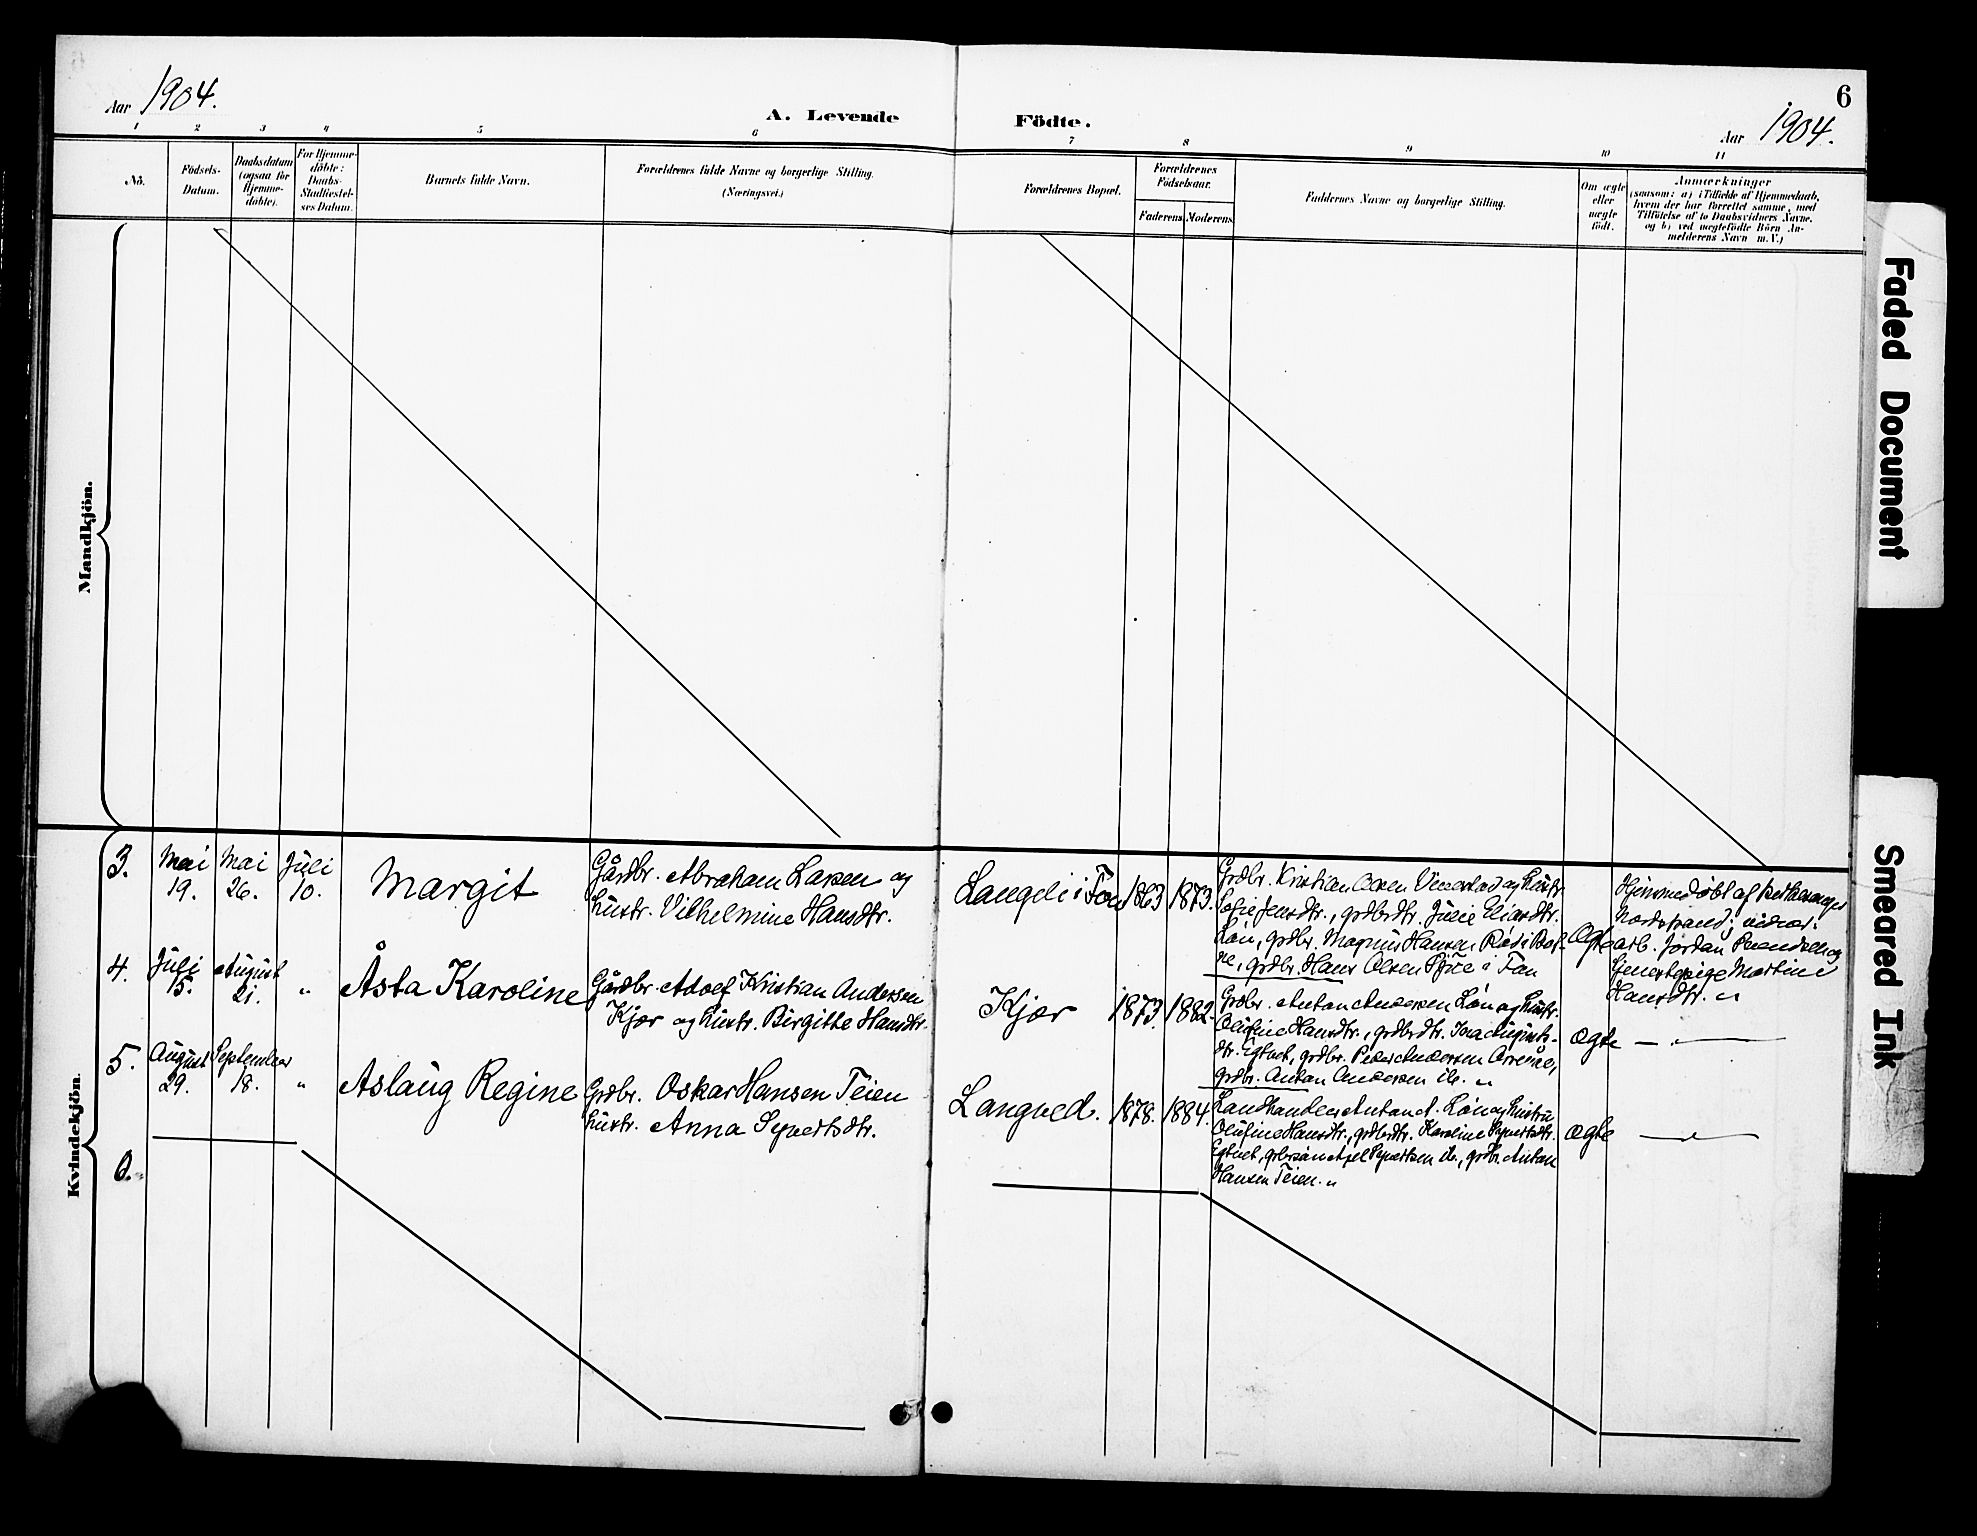 6
Aar 1904.
A. Levende Födte.
Aar 1904.
1 2 3 4 5 6 7 8 9 10 11
No.
Födsels-
Datum.
Daabsdatum
(ogsaa for
Hjemme-
döbte).
For Hjemme-
döbte:
Daabs-
Stadfæstel-
ses Datum.
Barnets fulde Navn.
Forældrenes fulde Navne og borgerlige Stilling.
(Næringsvei.)
Forældrenes Bopæl.
Forældrenes
Födselsaar.
Faderens
Moderens
Faddernes Navne og borgerlige Stilling.
Om ægte
eller
uægte
födt.
Anmærkninger
(saasom: a) i Tilfælde af Hjemmedaab,
hvem der har forrettet samme, med
Tilföielse af to Daabsvidners Navne,
og b) ved uægtefödte Börn An-
melderens Navn m. V.)
Mandkjön.
Kvindekjön.
3.
Mai
19.
Mai
26.
Juli
10.
Margit
Gårdbr. Abraham Larsen og
hustr. Vilhelmine Hansdtr.
Langø i
1863
1873.
Grdbr. Kristian Olsen og hustr.
Sofie Jensdtr., grdbrdtr. Julie Eliasdtr.
Løn, grdbr. Magnus Hansen
grdbr. Hans Olsen i
Ægte
Hjemmedøbt af
Nordstrand; vidner:
arb. Jordan og
tjenestepige Martine
Hansdtr. "
4.
Juli
15.
August
21.
"
Åsta Karoline
Gårdbr. Adolf Kristian Andersen
Kjær og hustr. Birgitte Hansdtr.
Kjær
1873.
1882.
Grdbr. Anton Andersen Løn og hustr.
Olufine Hansdtr., grdbrdtr. August-
dtr. grdbr. Peder Andersen
grdbr. Anton Andersen "
ægte
— " —
5.
August
29.
September
18.
"
Aslaug Regine
Grdbr. Oskar Hansen Teien
hustr. Anna Syvertsdtr.
Langved.
1878.
1884.
Landhandler Anton A. Løn og hustru
Olufine Hansdtr., grdbrdtr. Karoline Syvertsdtr.
grdbrsøn Axel Syvertsen grdbr. Anton
Hansen Teien. "
ægte
— " —
0.
Faded Document
Smeared Ink